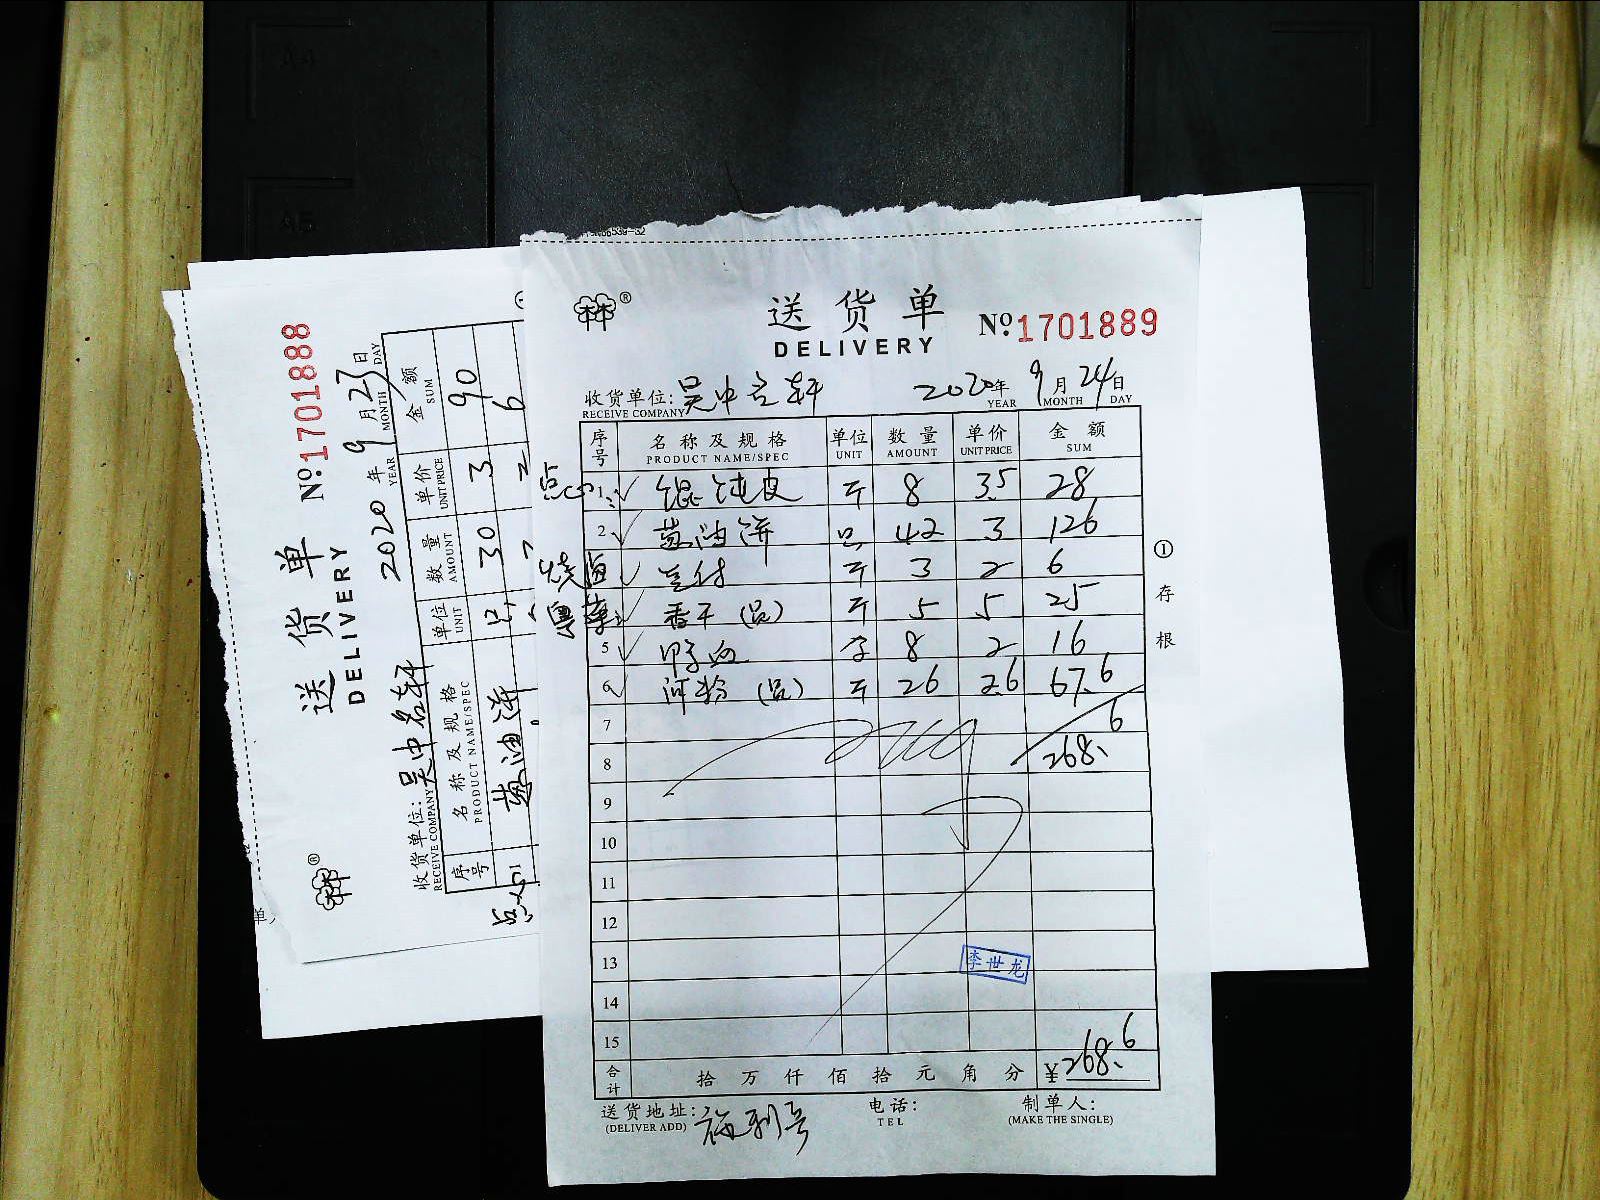 送货单
DELIVERY
№1701889
收货单位: 吴中名轩 2020年 9月 24日
RECEIVE COMPANY YEAR MONTH DAY
序号 名称及规格 单位 数量 单价 金额
PRODUCT NAME/SPEC UNIT AMOUNT UNIT PRICE SUM
点心 1 馄饨皮 斤 8 3.5 28
2 葱油饼 只 42 3 126
烧卤 斤 3 2 6
粤菜 香干 (只) 斤 5 5 25
5 8 2 16
6 河粉 斤 26 2.6 67.6
7
8 268.6
9
10
11
12
13 李世龙
14
15
合计 拾 万 仟 佰 拾 元 角 分 ¥268.6
送货地址: 电话: 制单人:
(DELIVER ADD) TEL (MAKE THE SINGLE)
① 存根
送货单
DELIVERY
№1701888
收货单位: 吴中名轩 2020年 9月 23日
RECEIVE COMPANY YEAR MONTH DAY
序号 名称及规格 单位 数量 单价 金额
PRODUCT NAME/SPEC UNIT AMOUNT UNIT PRICE SUM
点心 1 葱油饼 只 30 3 90
2 6